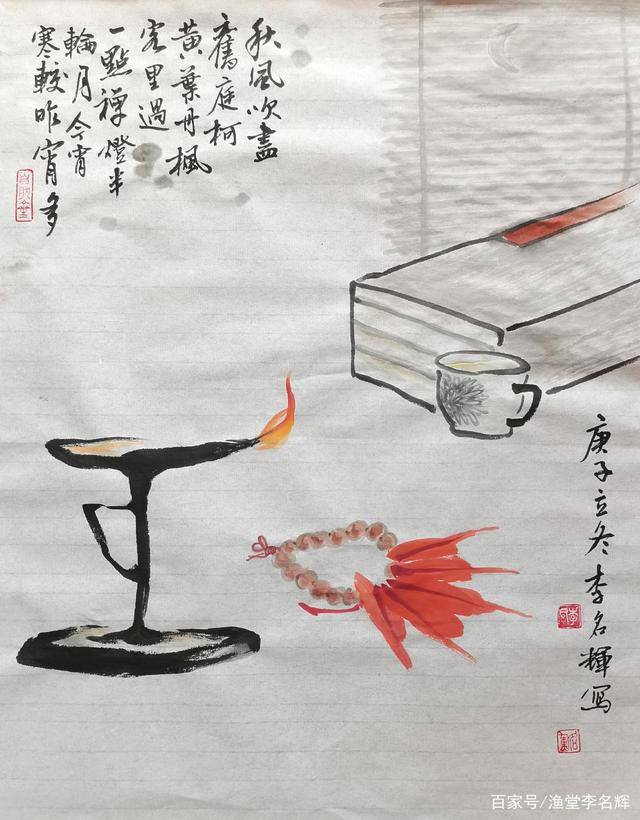 秋风吹盡
舊庭柯
黄葉丹楓
客里過
一點禅燈半
輪月今宵
寒較昨宵多
庚子立冬李名輝写
百家号/渔堂李名辉